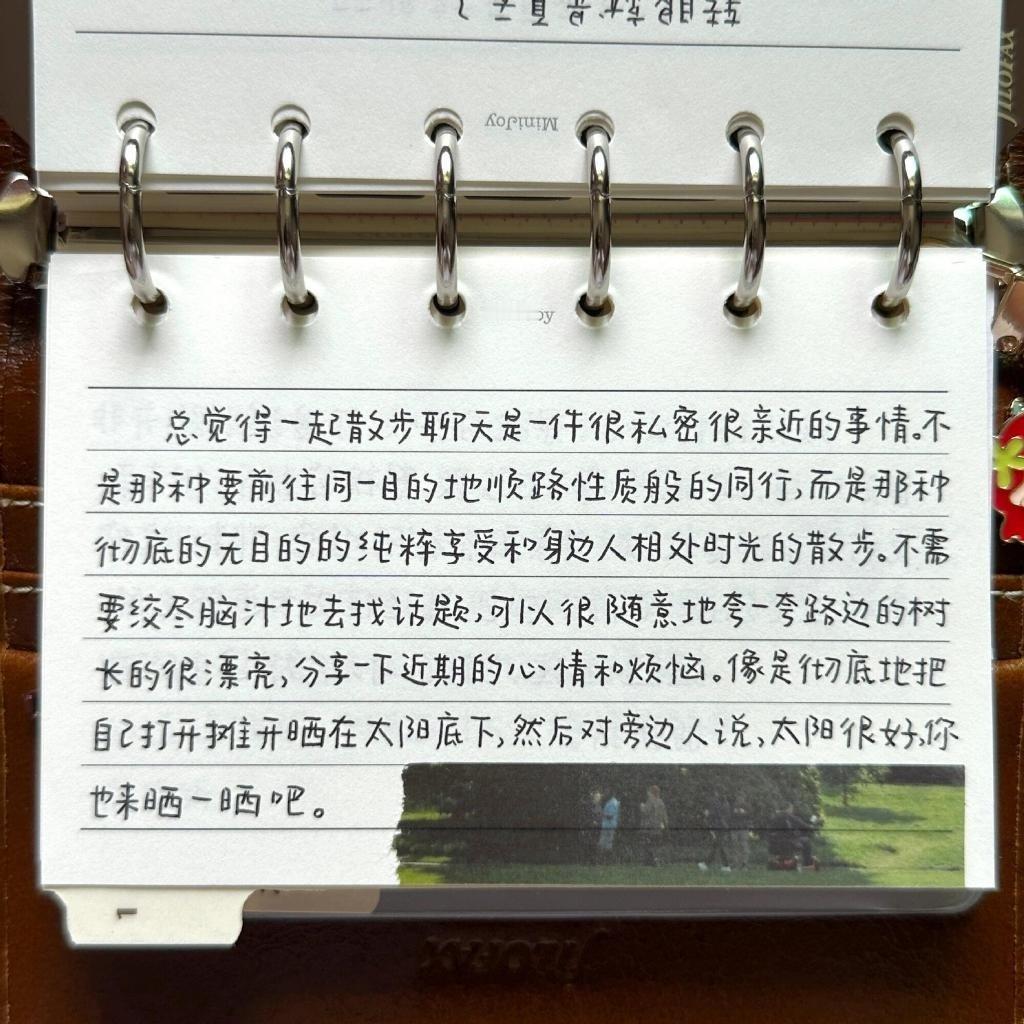 转眼就是夏天了
MiniJoy
总觉得一起散步聊天是一件很私密很亲近的事情。不
是那种要前往同一目的地顺路性质般的同行,而是那种
彻底的无目的的纯粹享受和身边人相处时光的散步。不需
要绞尽脑汁地去找话题,可以很随意地夸一夸路边的树
长的很漂亮,分享一下近期的心情和烦恼。像是彻底地把
自己打开摊开晒在太阳底下,然后对旁边人说,太阳很好,你
也来晒一晒吧。
1